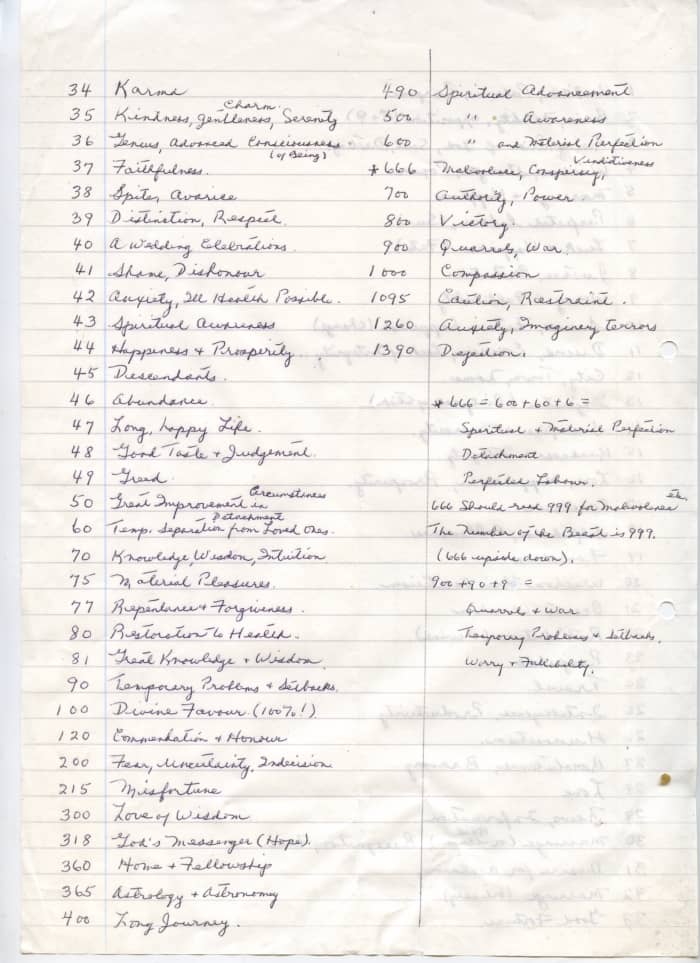 34 Karma
35 Kindness, gentleness, Charm, Serenity
36 Genius, Advanced Consciousness (of Being)
37 Faithfulness.
38 Spite, Avarice
39 Distinction, Respect.
40 A Wedding Celebrations.
41 Shame, Dishonour
42 Anxiety, Ill Health Possible.
43 Spiritual Awareness
44 Happiness + Prosperity
45 Descendants.
46 Abundance.
47 Long, happy Life.
48 Good Taste + Judgement.
49 Greed.
50 Great Improvement in Circumstances
60 Temp. Separation from Loved Ones. Detachment
70 Knowledge, Wisdom, Intuition
75 Material Pleasures.
77 Repentance + Forgiveness.
80 Restoration to Health.
81 Great Knowledge + Wisdom.
90 Temporary Problems + Setbacks.
100 Divine Favour (100%!)
120 Commendation + Honour
200 Fear, Uncertainty, Indecision
215 Misfortune
300 Love of Wisdom
318 God's Messenger (Hope).
360 Home + Fellowship
365 Astrology + Astronomy
400 Long Journey.
490 Spiritual Advancement
500 " Awareness
600 " and Material Perfection
*666 Malevolence, Conspiricy, Vindictiveness
700 Authority, Power
800 Victory.
900 Quarrels, War.
1000 Compassion
1095 Caution, Restraint.
1260 Anxiety, Imaginery terrors
1390 Dejection.
* 666 = 600 + 60 + 6 =
Spiritual + Material Perfection
Detachment
Perfected Labour.
666 Should read 999 for Malevolence etc.
The Number of the Beast is 999.
(666 upside down).
900 + 90 + 9 =
Quarrels + War
Temporary Problems + Setbacks.
Worry + Fallibility.